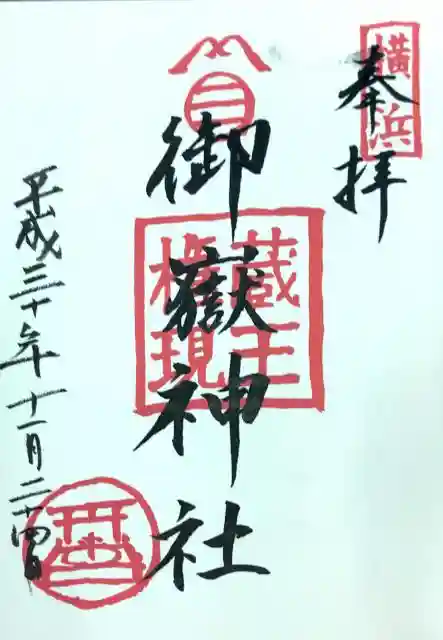 奉拝
横浜
御嶽神社
蔵王
権現
平成三十年十一月二十四日